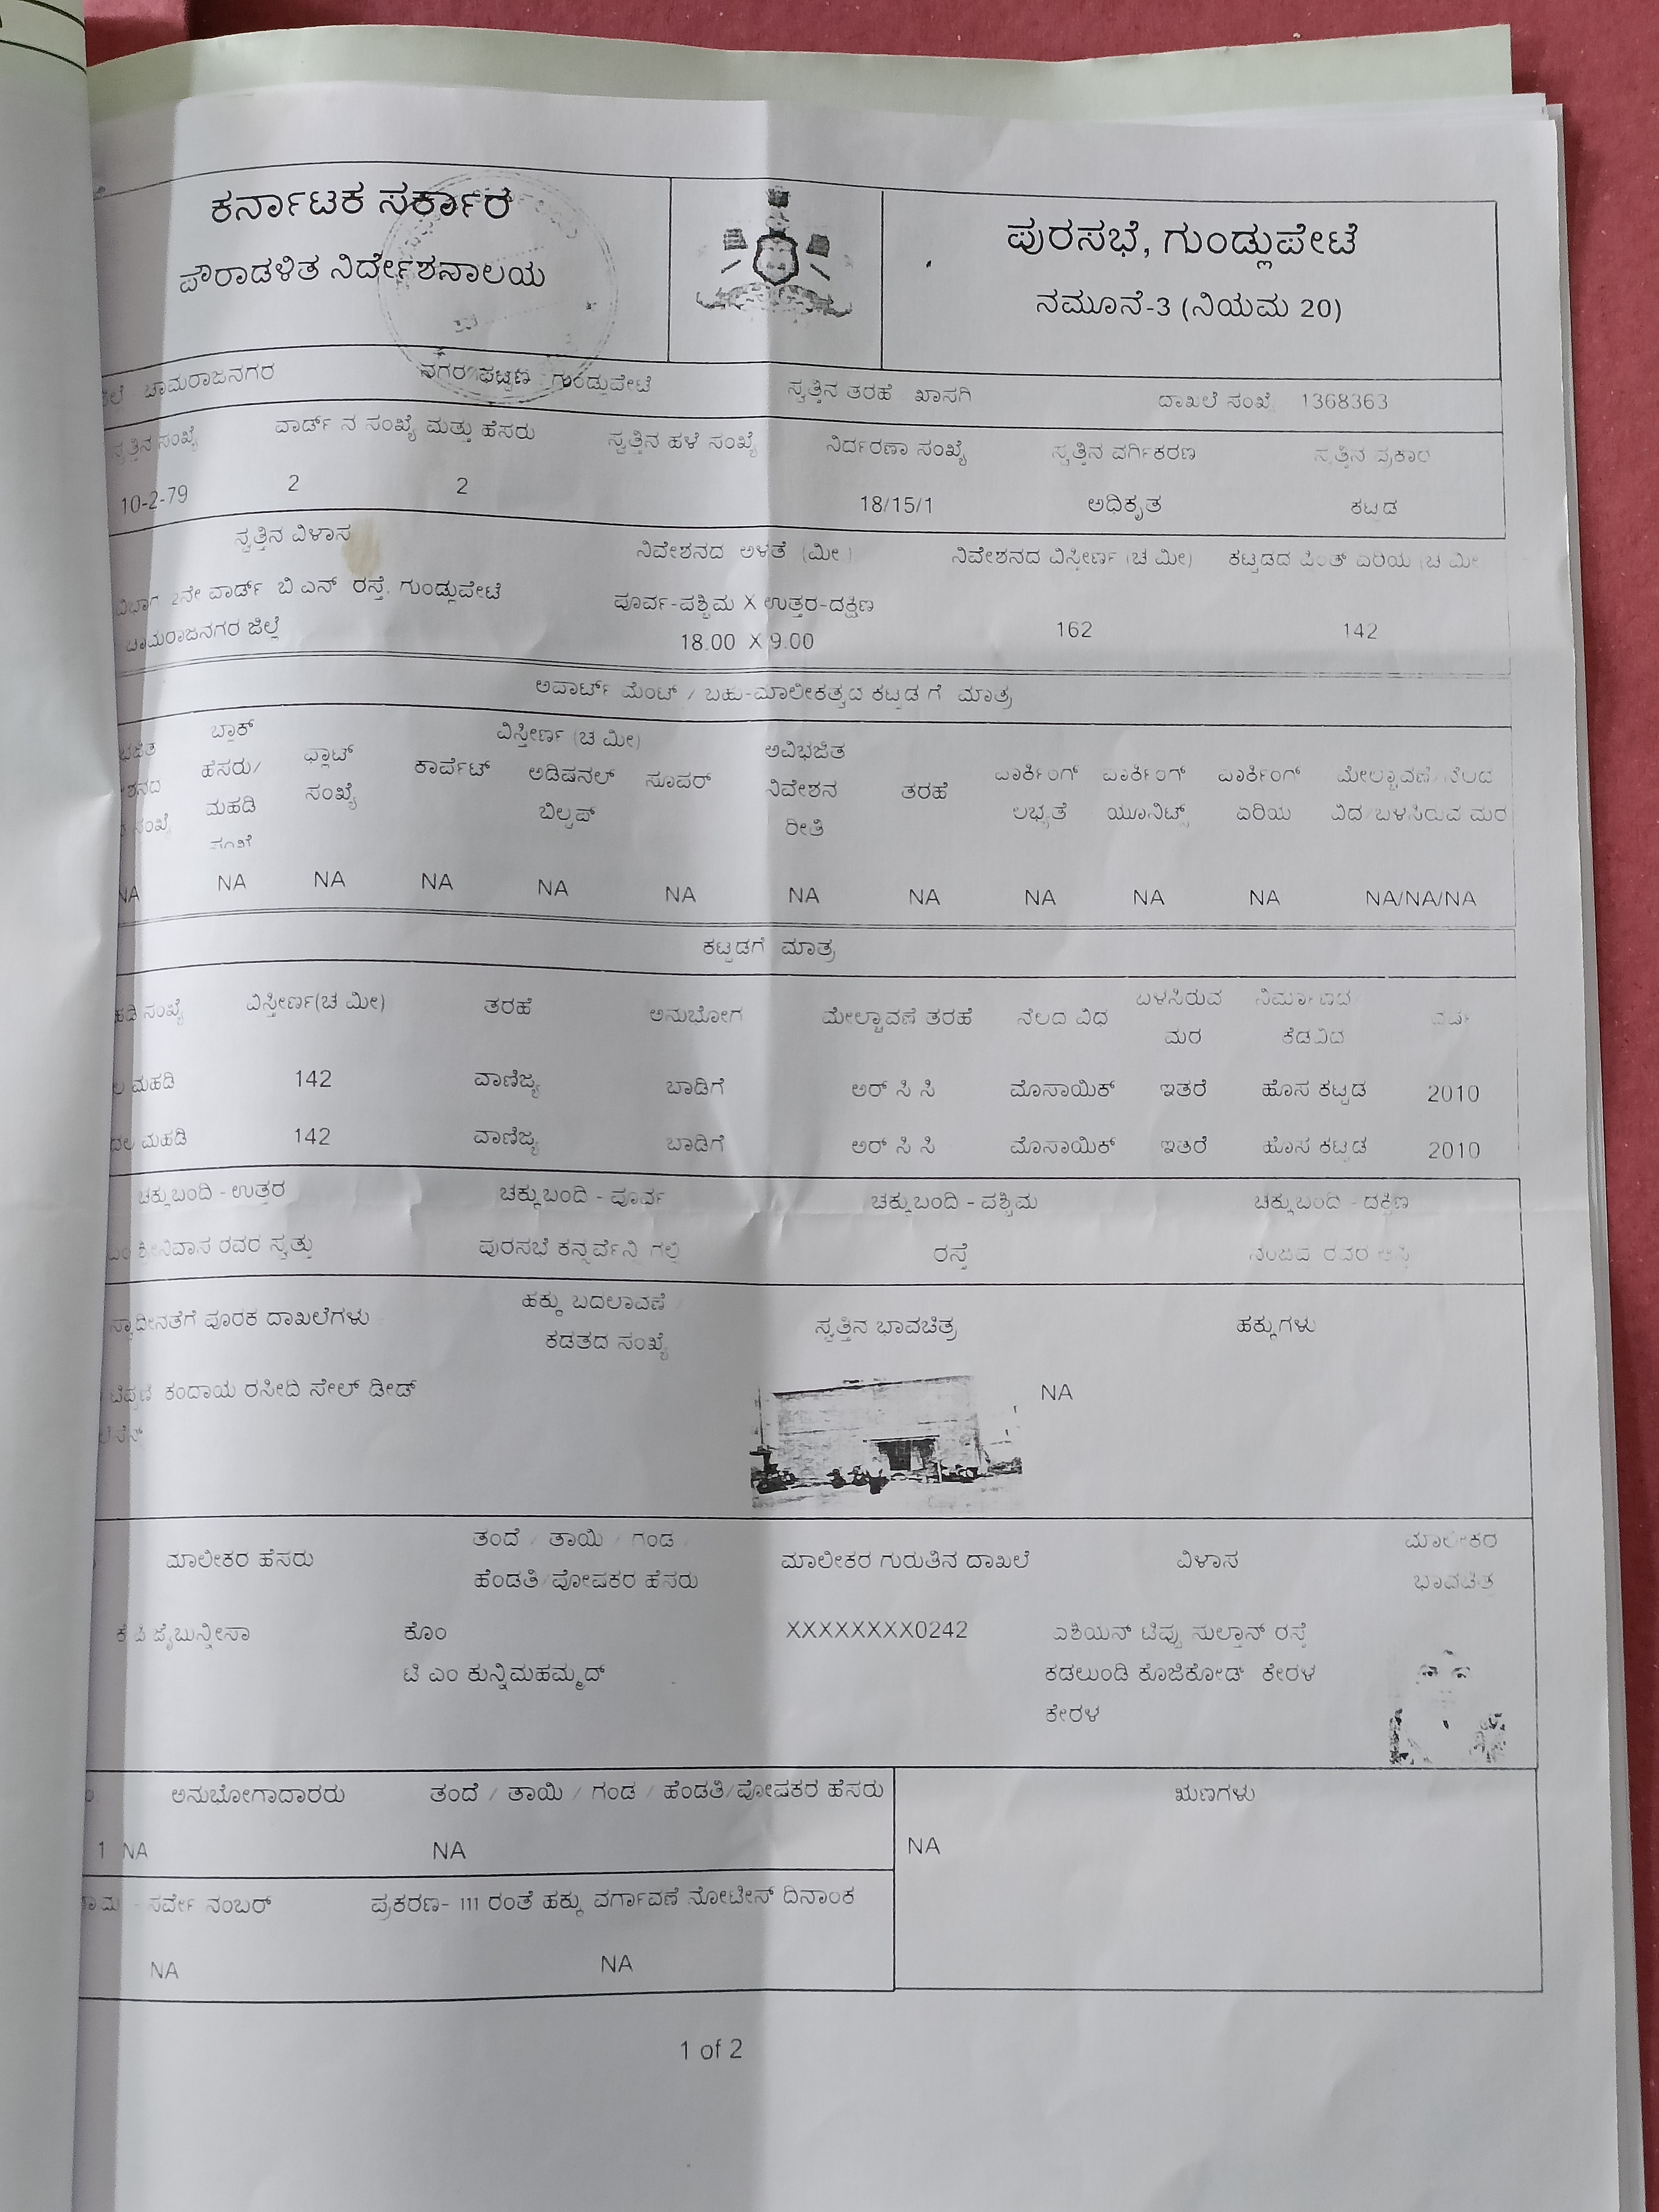 ಕರ್ನಾಟಕ ಸರ್ಕಾರ
ಪೌರಾಡಳಿತ ನಿರ್ದೇಶನಾಲಯ
ಪುರಸಭೆ, ಗುಂಡ್ಲುಪೇಟೆ
ನಮೂನೆ-3 (ನಿಯಮ 20)
ಚಾಮರಾಜನಗರ ನಗರ/ಪಟ್ಟಣ ಗುಂಡ್ಲುಪೇಟೆ ಸ್ವತ್ತಿನ ತರಹೆ ಖಾಸಗಿ ದಾಖಲೆ ಸಂಖ್ಯೆ 1368363
ಸ್ವತ್ತಿನ ಸಂಖ್ಯೆ ವಾರ್ಡ್ ನ ಸಂಖ್ಯೆ ಮತ್ತು ಹೆಸರು ಸ್ವತ್ತಿನ ಹಳೆ ಸಂಖ್ಯೆ ನಿರ್ದರಣಾ ಸಂಖ್ಯೆ ಸ್ವತ್ತಿನ ವರ್ಗಿಕರಣ ಸ್ವತ್ತಿನ ಪ್ರಕಾರ
10-2-79 2 2 18/15/1 ಅಧಿಕೃತ ಕಟ್ಟಡ
ಸ್ವತ್ತಿನ ವಿಳಾಸ ನಿವೇಶನದ ಅಳತೆ (ಮೀ ) ನಿವೇಶನದ ವಿಸ್ತೀರ್ಣ (ಚ ಮೀ) ಕಟ್ಟಡದ ಪಿಂತ್ ಏರಿಯ (ಚ ಮೀ
2ನೇ ವಾರ್ಡ್ ಬಿ ಎನ್ ರಸ್ತೆ, ಗುಂಡ್ಲುಪೇಟೆ ಪೂರ್ವ-ಪಶ್ಚಿಮ X ಉತ್ತರ-ದಕ್ಷಿಣ
ಚಾಮರಾಜನಗರ ಜಿಲ್ಲೆ 18.00 X 9.00 162 142
ಅಪಾರ್ಟ್ ಮೆಂಟ್ / ಬಹು-ಮಾಲೀಕತ್ವದ ಕಟ್ಟಡ ಗೆ ಮಾತ್ರ
ಬ್ಲಾಕ್ ವಿಸ್ತೀರ್ಣ (ಚ ಮೀ) ಅವಿಭಜಿತ
ಹೆಸರು/ ಫ್ಲಾಟ್ ಕಾರ್ಪೆಟ್ ಅಡಿಷನಲ್ ಸೂಪರ್ ನಿವೇಶನ ತರಹೆ ಪಾರ್ಕಿಂಗ್ ಪಾರ್ಕಿಂಗ್ ಪಾರ್ಕಿಂಗ್ ಮೇಲ್ಚಾವಣಿ/ನೆಲದ
ಮಹಡಿ ಸಂಖ್ಯೆ ಬಿಲ್ಟಪ್ ರೀತಿ ಲಭ್ಯತೆ ಯೂನಿಟ್ಸ್ ಏರಿಯ ವಿದ/ಬಳಸಿರುವ ಮರ
ಸಂಖ್ಯೆ
NA NA NA NA NA NA NA NA NA NA NA NA/NA/NA
ಕಟ್ಟಡಗೆ ಮಾತ್ರ
ಸಂಖ್ಯೆ ವಿಸ್ತೀರ್ಣ(ಚ ಮೀ) ತರಹೆ ಅನುಭೋಗ ಮೇಲ್ಚಾವಣಿ ತರಹೆ ನೆಲದ ವಿಧ ಬಳಸಿರುವ ಮರ ನಿರ್ಮಾಣದ ಕೆಡವಿದ
ಮಹಡಿ 142 ವಾಣಿಜ್ಯ ಬಾಡಿಗೆ ಆರ್ ಸಿ ಸಿ ಮೊಸಾಯಿಕ್ ಇತರೆ ಹೊಸ ಕಟ್ಟಡ 2010
ಮಹಡಿ 142 ವಾಣಿಜ್ಯ ಬಾಡಿಗೆ ಆರ್ ಸಿ ಸಿ ಮೊಸಾಯಿಕ್ ಇತರೆ ಹೊಸ ಕಟ್ಟಡ 2010
ಚಕ್ಕುಬಂದಿ - ಉತ್ತರ ಚಕ್ಕುಬಂದಿ - ಪೂರ್ವ ಚಕ್ಕುಬಂದಿ - ಪಶ್ಚಿಮ ಚಕ್ಕುಬಂದಿ - ದಕ್ಷಿಣ
ಶ್ರೀನಿವಾಸ ರವರ ಸ್ವತ್ತು ಪುರಸಭೆ ಕನ್ಸರ್ವೆನ್ಸಿ ಗಲ್ಲಿ ರಸ್ತೆ ರವರ
ಸ್ವಾದೀನತೆಗೆ ಪೂರಕ ದಾಖಲೆಗಳು ಹಕ್ಕು ಬದಲಾವಣೆ ಸ್ವತ್ತಿನ ಭಾವಚಿತ್ರ ಹಕ್ಕುಗಳು
ಕಡತದ ಸಂಖ್ಯೆ
ಕಂದಾಯ ರಸೀದಿ ಸೇಲ್ ಡೀಡ್ NA
ಮಾಲೀಕರ ಹೆಸರು ತಂದೆ / ತಾಯಿ / ಗಂಡ / ಮಾಲೀಕರ ಗುರುತಿನ ದಾಖಲೆ ವಿಳಾಸ ಮಾಲೀಕರ
ಹೆಂಡತಿ/ಪೋಷಕರ ಹೆಸರು ಭಾವಚಿತ್ರ
ಕೆ ಪಿ ಜೈಬುನ್ನೀಸಾ ಕೊಂ XXXXXXXX0242 ಏಶಿಯನ್ ಟಿಪ್ಪು ಸುಲ್ತಾನ್ ರಸ್ತೆ
ಟಿ ಎಂ ಕುನ್ನಿಮಹಮ್ಮದ್ ಕಡಲುಂಡಿ ಕೊಜಿಕೋಡ್ ಕೇರಳ
ಕೇರಳ
ಅನುಭೋಗಾದಾರರು ತಂದೆ / ತಾಯಿ / ಗಂಡ / ಹೆಂಡತಿ/ಪೋಷಕರ ಹೆಸರು ಋಣಗಳು
1 NA NA NA
ಸರ್ವೇ ನಂಬರ್ ಪ್ರಕರಣ- 111 ರಂತೆ ಹಕ್ಕು ವರ್ಗಾವಣೆ ನೋಟೀಸ್ ದಿನಾಂಕ
NA NA
1 of 2